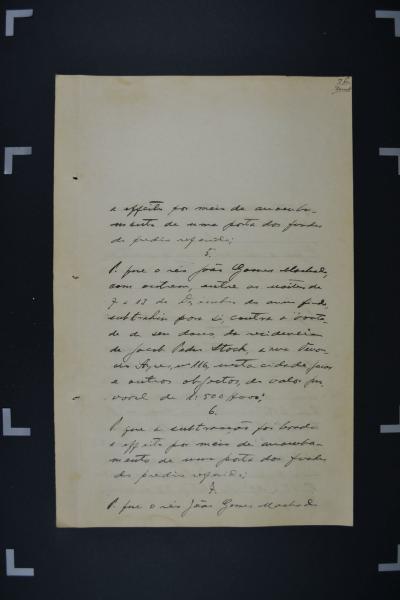 a effeito por meio de arromba-
mento de uma porta dos fundos
do predio referido;
5.
P. que o réo João Gomes Machado,
com outrem, entre as noites de
7 a 13 de Dezembro do anno findo,
subtrahiu para si, contra a vonta-
de de seu dono, da residencia
de Jacob Pedro Stock, a rua
nº 116, nesta cidade,
e outros objectos, de valor
de 2:500$000;
6.
P. que a subtracção foi levada
a effeito por meio de arromba-
mento de uma porta dos fundos
do predio referido;
7.
P. que o réo João Gomes Machado